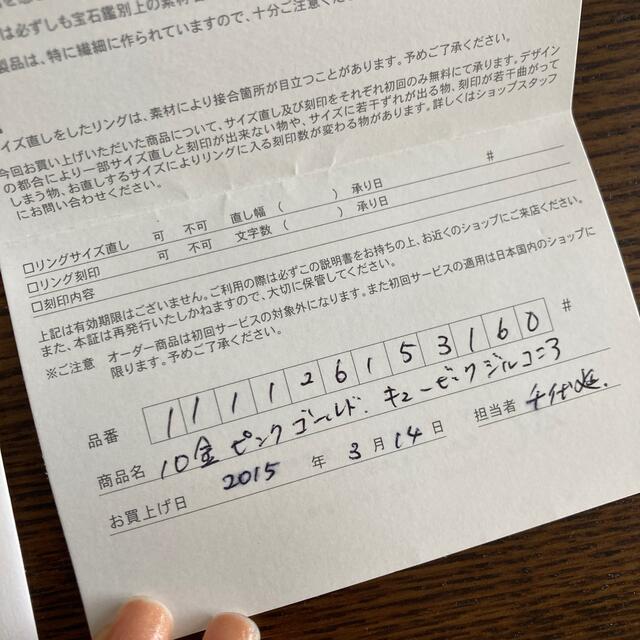 は必ずしも宝石鑑別上の素材
製品は、特に繊細に作られていますので、十分ご注意くださ
イズ直しをしたリングは、素材により接合箇所が目立つことがあります。予めご了承ください。
今回お買い上げいただいた商品について、サイズ直し及び刻印をそれぞれ初回のみ無料にて承ります。デザイン
の都合により一部サイズ直しと刻印が出来ない物や、サイズに若干ずれが出る物、刻印が若干曲がって
しまう物、お直しするサイズによりリングに入る刻印数が変わる物があります。詳しくはショップスタッフ
にお問い合わせください。
□リングサイズ直し 可 不可 直し幅 ( ) 承り日 #
□リング刻印 可 不可 文字数 ( ) 承り日
□刻印内容
上記は有効期限はございません。ご利用の際は必ずこの説明書をお持ちの上、お近くのショップにご来店ください。
また、本証は再発行いたしかねますので、大切に保管してください。
※ご注意 オーダー商品は初回サービスの対象外になります。また初回サービスの適用は日本国内のショップに
限ります。予めご了承ください。
品番 111126153160 #
商品名 10金 ピンクゴールド. キュービックジルコニア
お買上げ日 2015 年 3 月 14 日 担当者